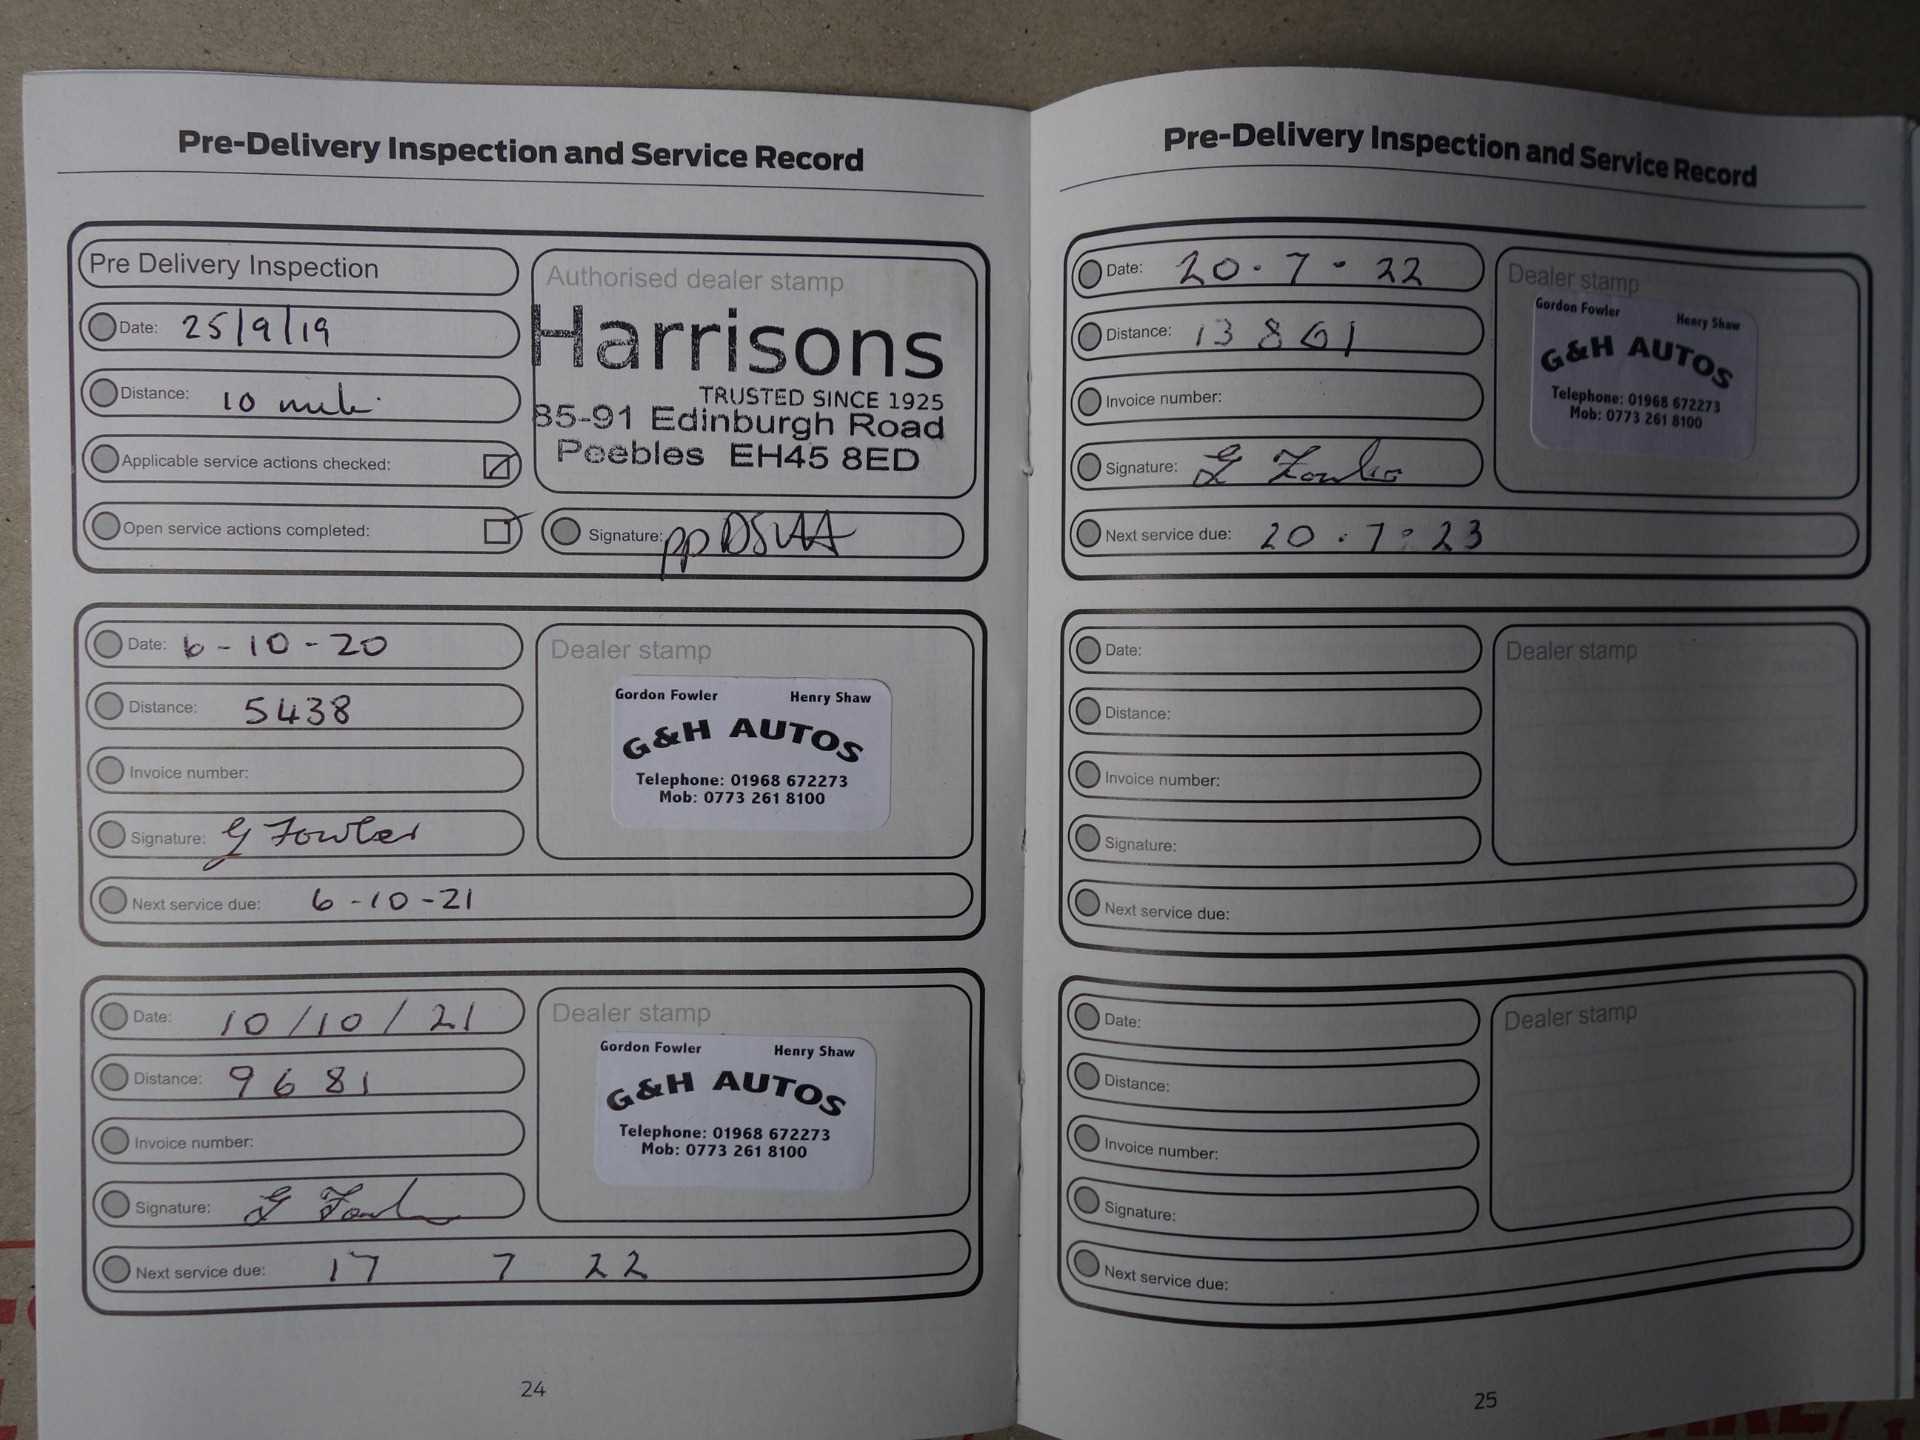 Pre-Delivery Inspection and Service Record
Pre Delivery Inspection
Date: 25/9/19
Distance: 10 mile
Applicable service actions checked:
Open service actions completed:
Authorised dealer stamp
Harrisons
TRUSTED SINCE 1925
85-91 Edinburgh Road
Peebles EH45 8ED
Signature: pp
Date: 6-10-20
Distance: 5438
Invoice number:
Signature: G Fowler
Next service due: 6-10-21
Dealer stamp
Gordon Fowler Henry Shaw
G&H AUTOS
Telephone: 01968 672273
Mob: 0773 261 8100
Date: 10/10/21
Distance: 9681
Invoice number:
Signature: G Fowler
Next service due: 17 7 22
Dealer stamp
Gordon Fowler Henry Shaw
G&H AUTOS
Telephone: 01968 672273
Mob: 0773 261 8100
24
Pre-Delivery Inspection and Service Record
Date: 20.7.22
Distance: 13861
Invoice number:
Signature: G Fowler
Next service due: 20.7.23
Dealer stamp
Gordon Fowler Henry Shaw
G&H AUTOS
Telephone: 01968 672273
Mob: 0773 261 8100
Date:
Distance:
Invoice number:
Signature:
Next service due:
Dealer stamp
Date:
Distance:
Invoice number:
Signature:
Next service due:
Dealer stamp
25